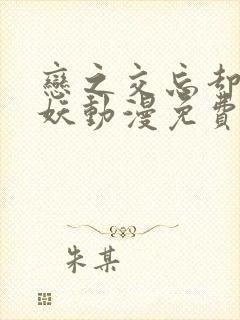 戀之交忘却
妖動漫免費
朱某